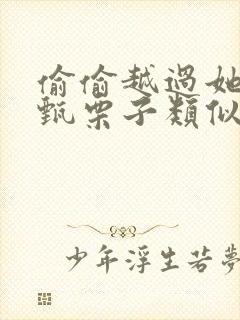 偷偷越過她
甄栗子類似
少年浮生若夢